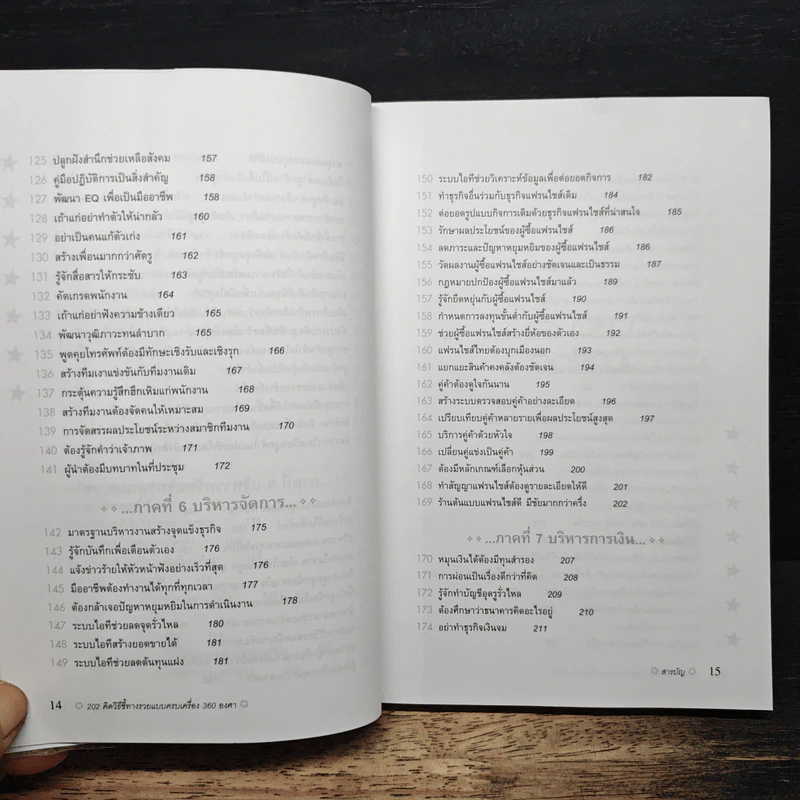 125 ปลูกฝังสำนึกช่วยเหลือสังคม 157
126 คู่มือปฏิบัติการเป็นสิ่งสำคัญ 158
127 พัฒนา EQ เพื่อเป็นมืออาชีพ 158
128 เถ้าแก่อย่าทำตัวให้น่ากลัว 160
129 อย่าเป็นคนแก้ตัวเก่ง 161
130 สร้างเพื่อนมากกว่าศัตรู 162
131 รู้จักสื่อสารให้กระชับ 163
132 คัดเกรดพนักงาน 164
133 เถ้าแก่อย่าฟังความข้างเดียว 165
134 พัฒนาวุฒิภาวะทนลำบาก 165
135 พูดคุยโทรศัพท์ต้องมีทักษะเชิงรับและเชิงรุก 166
136 สร้างทีมเงาแข่งขันกับทีมงานเดิม 167
137 กระตุ้นความรู้สึกฮึกเหิมแก่พนักงาน 168
138 สร้างทีมงานต้องจัดคนให้เหมาะสม 169
139 การจัดสรรผลประโยชน์ระหว่างสมาชิกทีมงาน 170
140 ต้องรู้จักคำว่าเจ้าภาพ 171
141 ผู้นำต้องมีบทบาทในที่ประชุม 172
...ภาคที่ 6 บริหารจัดการ...
142 มาตรฐานบริหารงานสร้างจุดแข็งธุรกิจ 175
143 รู้จักบันทึกเพื่อเตือนตัวเอง 176
144 แจ้งข่าวร้ายให้หัวหน้าฟังอย่างเร็วที่สุด 176
145 มืออาชีพต้องทำงานได้ทุกที่ทุกเวลา 177
146 ต้องกล้าเจอปัญหาหยุมหยิมในการดำเนินงาน 178
147 ระบบไอทีช่วยลดจุดรั่วไหล 180
148 ระบบไอทีสร้างยอดขายได้ 181
149 ระบบไอทีช่วยลดต้นทุนแฝง 181
14 202 คิดวิธีชี้ทางรวยแบบครบเครื่อง 360 องศา
150 ระบบไอทีช่วยวิเคราะห์ข้อมูลเพื่อต่อยอดกิจการ 182
151 ทำธุรกิจอื่นร่วมกับธุรกิจแฟรนไชส์เดิม 184
152 ต่อยอดรูปแบบกิจการเดิมด้วยธุรกิจแฟรนไชส์ที่น่าสนใจ 185
153 รักษาผลประโยชน์ของผู้ซื้อแฟรนไชส์ 186
154 ลดภาระและปัญหาหยุมหยิมของผู้ซื้อแฟรนไชส์ 186
155 วัดผลงานผู้ซื้อแฟรนไชส์อย่างชัดเจนและเป็นธรรม 187
156 กฎหมายปกป้องผู้ซื้อแฟรนไชส์มาแล้ว 189
157 รู้จักยืดหยุ่นกับผู้ซื้อแฟรนไชส์ 190
158 กำหนดการลงทุนขั้นต่ำกับผู้ซื้อแฟรนไชส์ 191
159 ช่วยผู้ซื้อแฟรนไชส์สร้างยี่ห้อของตัวเอง 192
160 แฟรนไชส์ไทยต้องบุกเมืองนอก 193
161 แยกแยะสินค้าคงคลังต้องชัดเจน 194
162 คู่ค้าต้องดูใจกันนาน 195
163 สร้างระบบตรวจสอบคู่ค้าอย่างละเอียด 196
164 เปรียบเทียบคู่ค้าหลายรายเพื่อผลประโยชน์สูงสุด 197
165 บริการคู่ค้าด้วยหัวใจ 198
166 เปลี่ยนคู่แข่งเป็นคู่ค้า 199
167 ต้องมีหลักเกณฑ์เลือกหุ้นส่วน 200
168 ทำสัญญาแฟรนไชส์ต้องดูรายละเอียดให้ดี 201
169 ร้านต้นแบบแฟรนไชส์ดี มีชัยมากกว่าครึ่ง 202
...ภาคที่ 7 บริหารการเงิน...
170 หมุนเงินได้ต้องมีทุนสำรอง 207
171 การผ่อนเป็นเรื่องดีกว่าที่คิด 208
172 รู้จักทำบัญชีอุดรูรั่วไหล 209
173 ต้องศึกษาว่าธนาคารคิดอะไรอยู่ 210
174 อย่าทำธุรกิจเงินจม 211
สารบัญ 15